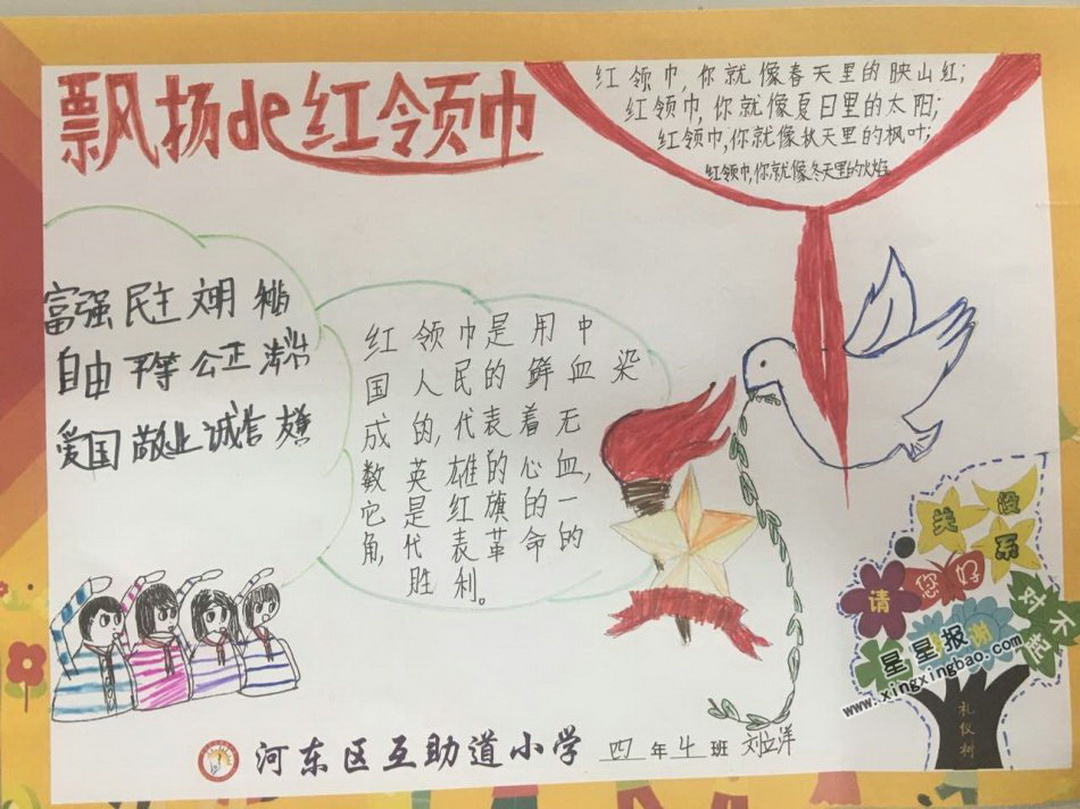 飘扬de红领巾
红领巾,你就像春天里的映山红;
红领巾,你就像夏日里的太阳;
红领巾,你就像秋天里的枫叶;
红领巾,你就像冬天里的火焰
富强 民主 文明 和谐
自由 平等 公正 法治
爱国 敬业 诚信 友善
红领巾是用中
国人民的鲜血染
成的,代表着无
数英雄的心血,
它是红旗的一
角,代表革命的
胜利。
没
关
系
您好
请
对不起
谢
星星报
www.xingxingbao.com
礼仪树
河东区互助道小学 四年4班 刘立洋